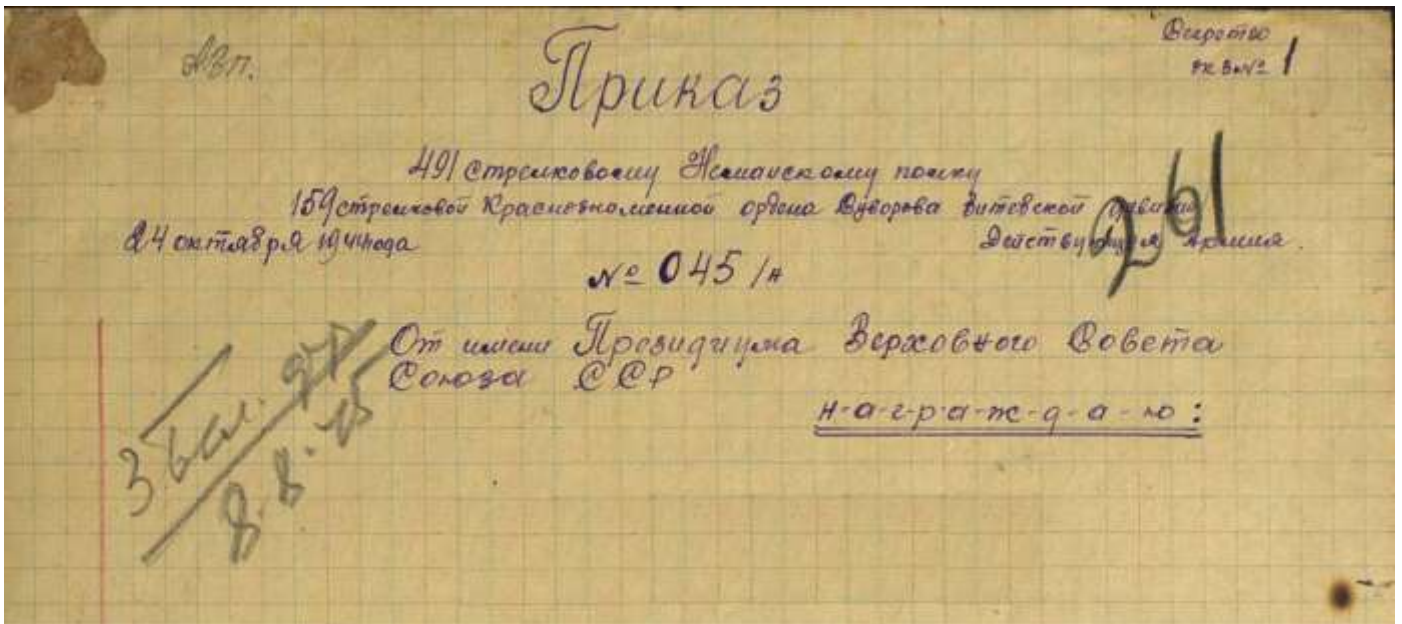 Секретно
экз №1
Приказ
491 стрелковому Неманскому полку
159 стрелковой Краснознаменной ордена Суворова Витебской дивизии
24 октября 1944 года
Действующая армия.
№ 045/н
261
От имени Президиума Верховного Совета
Союза ССР
н-а-г-р-а-ж-д-а-ю:
8.8.45